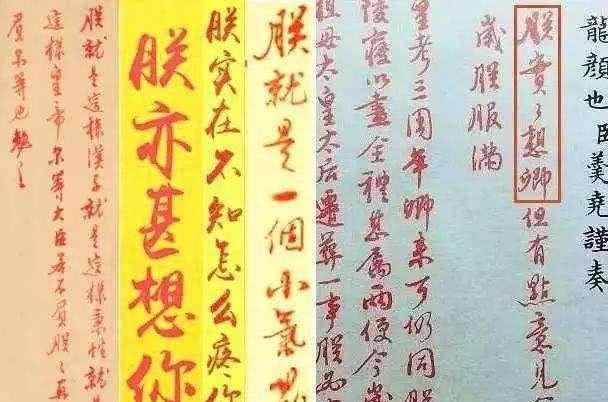 龍顏也臣羹堯謹奏
朕實々想卿但有點意見
服滿
皇考三周年卿來可仍同朕
陵寢以盡全禮甚屬兩便今歲
祖母太皇太后遷葬一事朕
朕就是一個小氣
朕實在不知怎么疼你
朕亦甚想你
朕就是這樣漢子就是這樣秉性就
這樣皇帝尔等大臣若不負朕々再
尔等也勉之